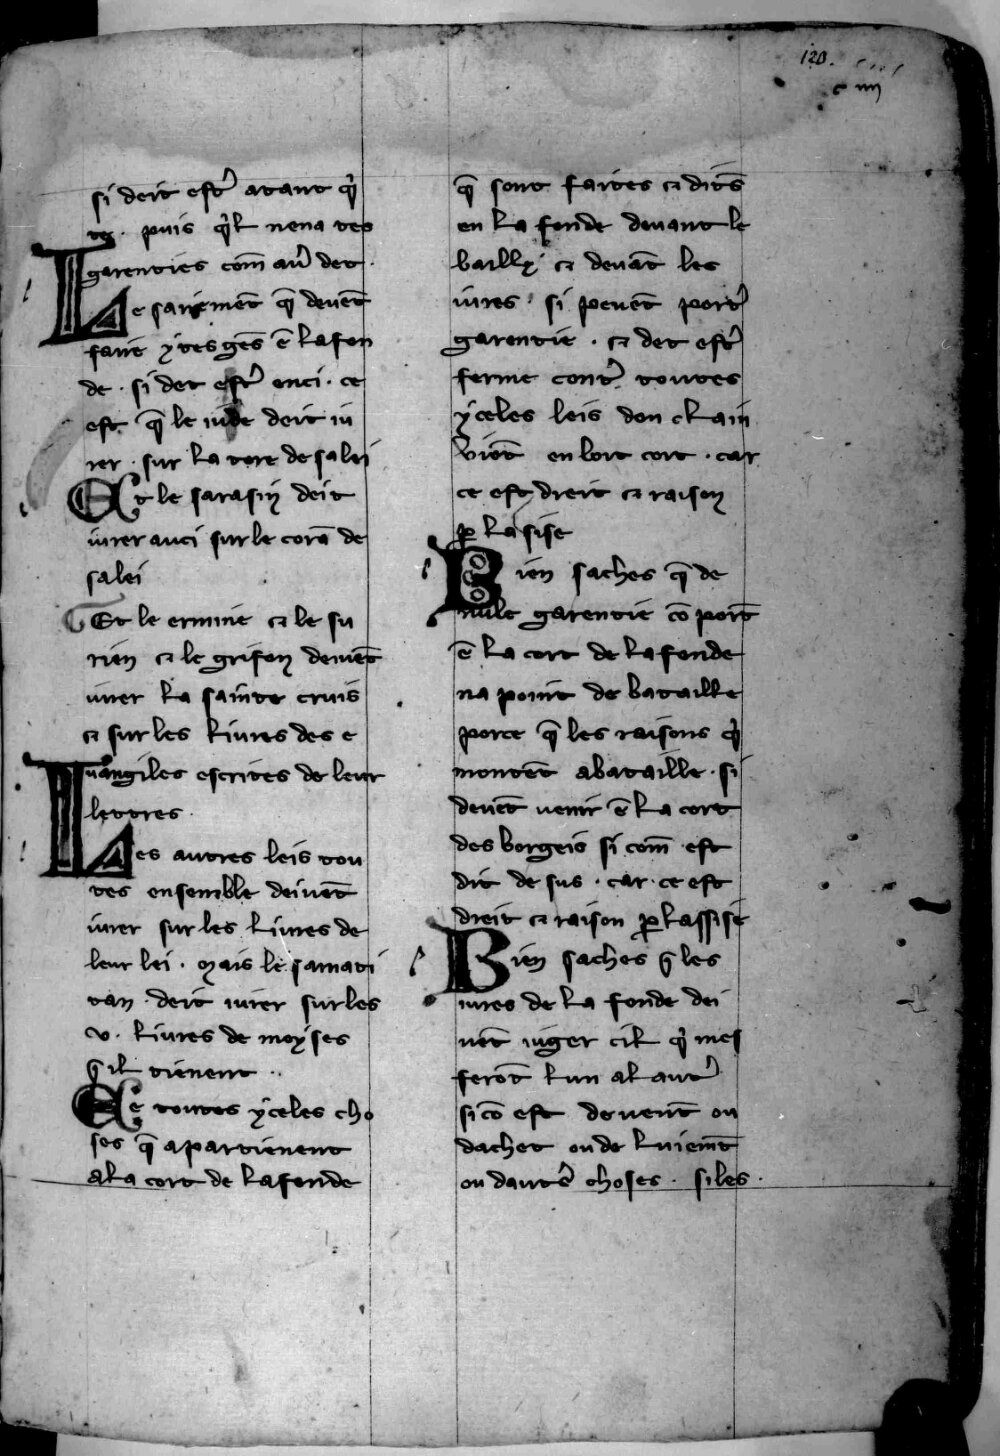 120.
c iiii
si deit estr̉ atant qͥ
te. puis qͥl nena tes
garenties com̄ aur̉ det.
Le sairemēt q̄ deuēt
faire ytes gēs ē la fon
de. si det estr̉ enci. ce
est q̄ le iude deit iu
rer. sur la tore de sa lei
Et le sarasin deit
iurer auci sur le coran de
sa lei
Et le ermine ⁊ le su
rien ⁊ le grifon deiuēt
iurer la sainte cruis
⁊ sur les liures des e
uangiles escrites de leur
lettres.
Les autres leis tou
tes ensemble deiuēt
iurer sur les liures de
leur lei. mais le samari
tan. deit iurer sur les
v. liures de moyses
q̄ il tienent.
De toutes yceles cho
ses q̄ apartienent
a la cort de la fonde
q̄ sont faites ⁊ dites
en la fonde deuant le
bailly ⁊ deuāt les
iures. si peuēt portr̉
garentie. ⁊ det estr̉
ferme contr̉ toutes
yceles leis don clain
viēt en lort cort. car
ce est dreit ⁊ raison
ꝑ lasise
Bien saches q̄ de
nule garentie cō port
ē la cort de la fonde
na point de bataille
porce q̄ les raisons qͥ
montēt a bataille. si
deuēt uenir ē la cort
des borgeis si com̄ est
dit de sus. car ce est
dreit ⁊ raison ꝑ lassise
Bien saches q̄ les
iures de la fonde dei
uēt iuger cil qͥ mes
ferōt lun al autr̉
si cō est de uente ou
dachet ou de luiemēt
ou dautr̉s choses. si les.